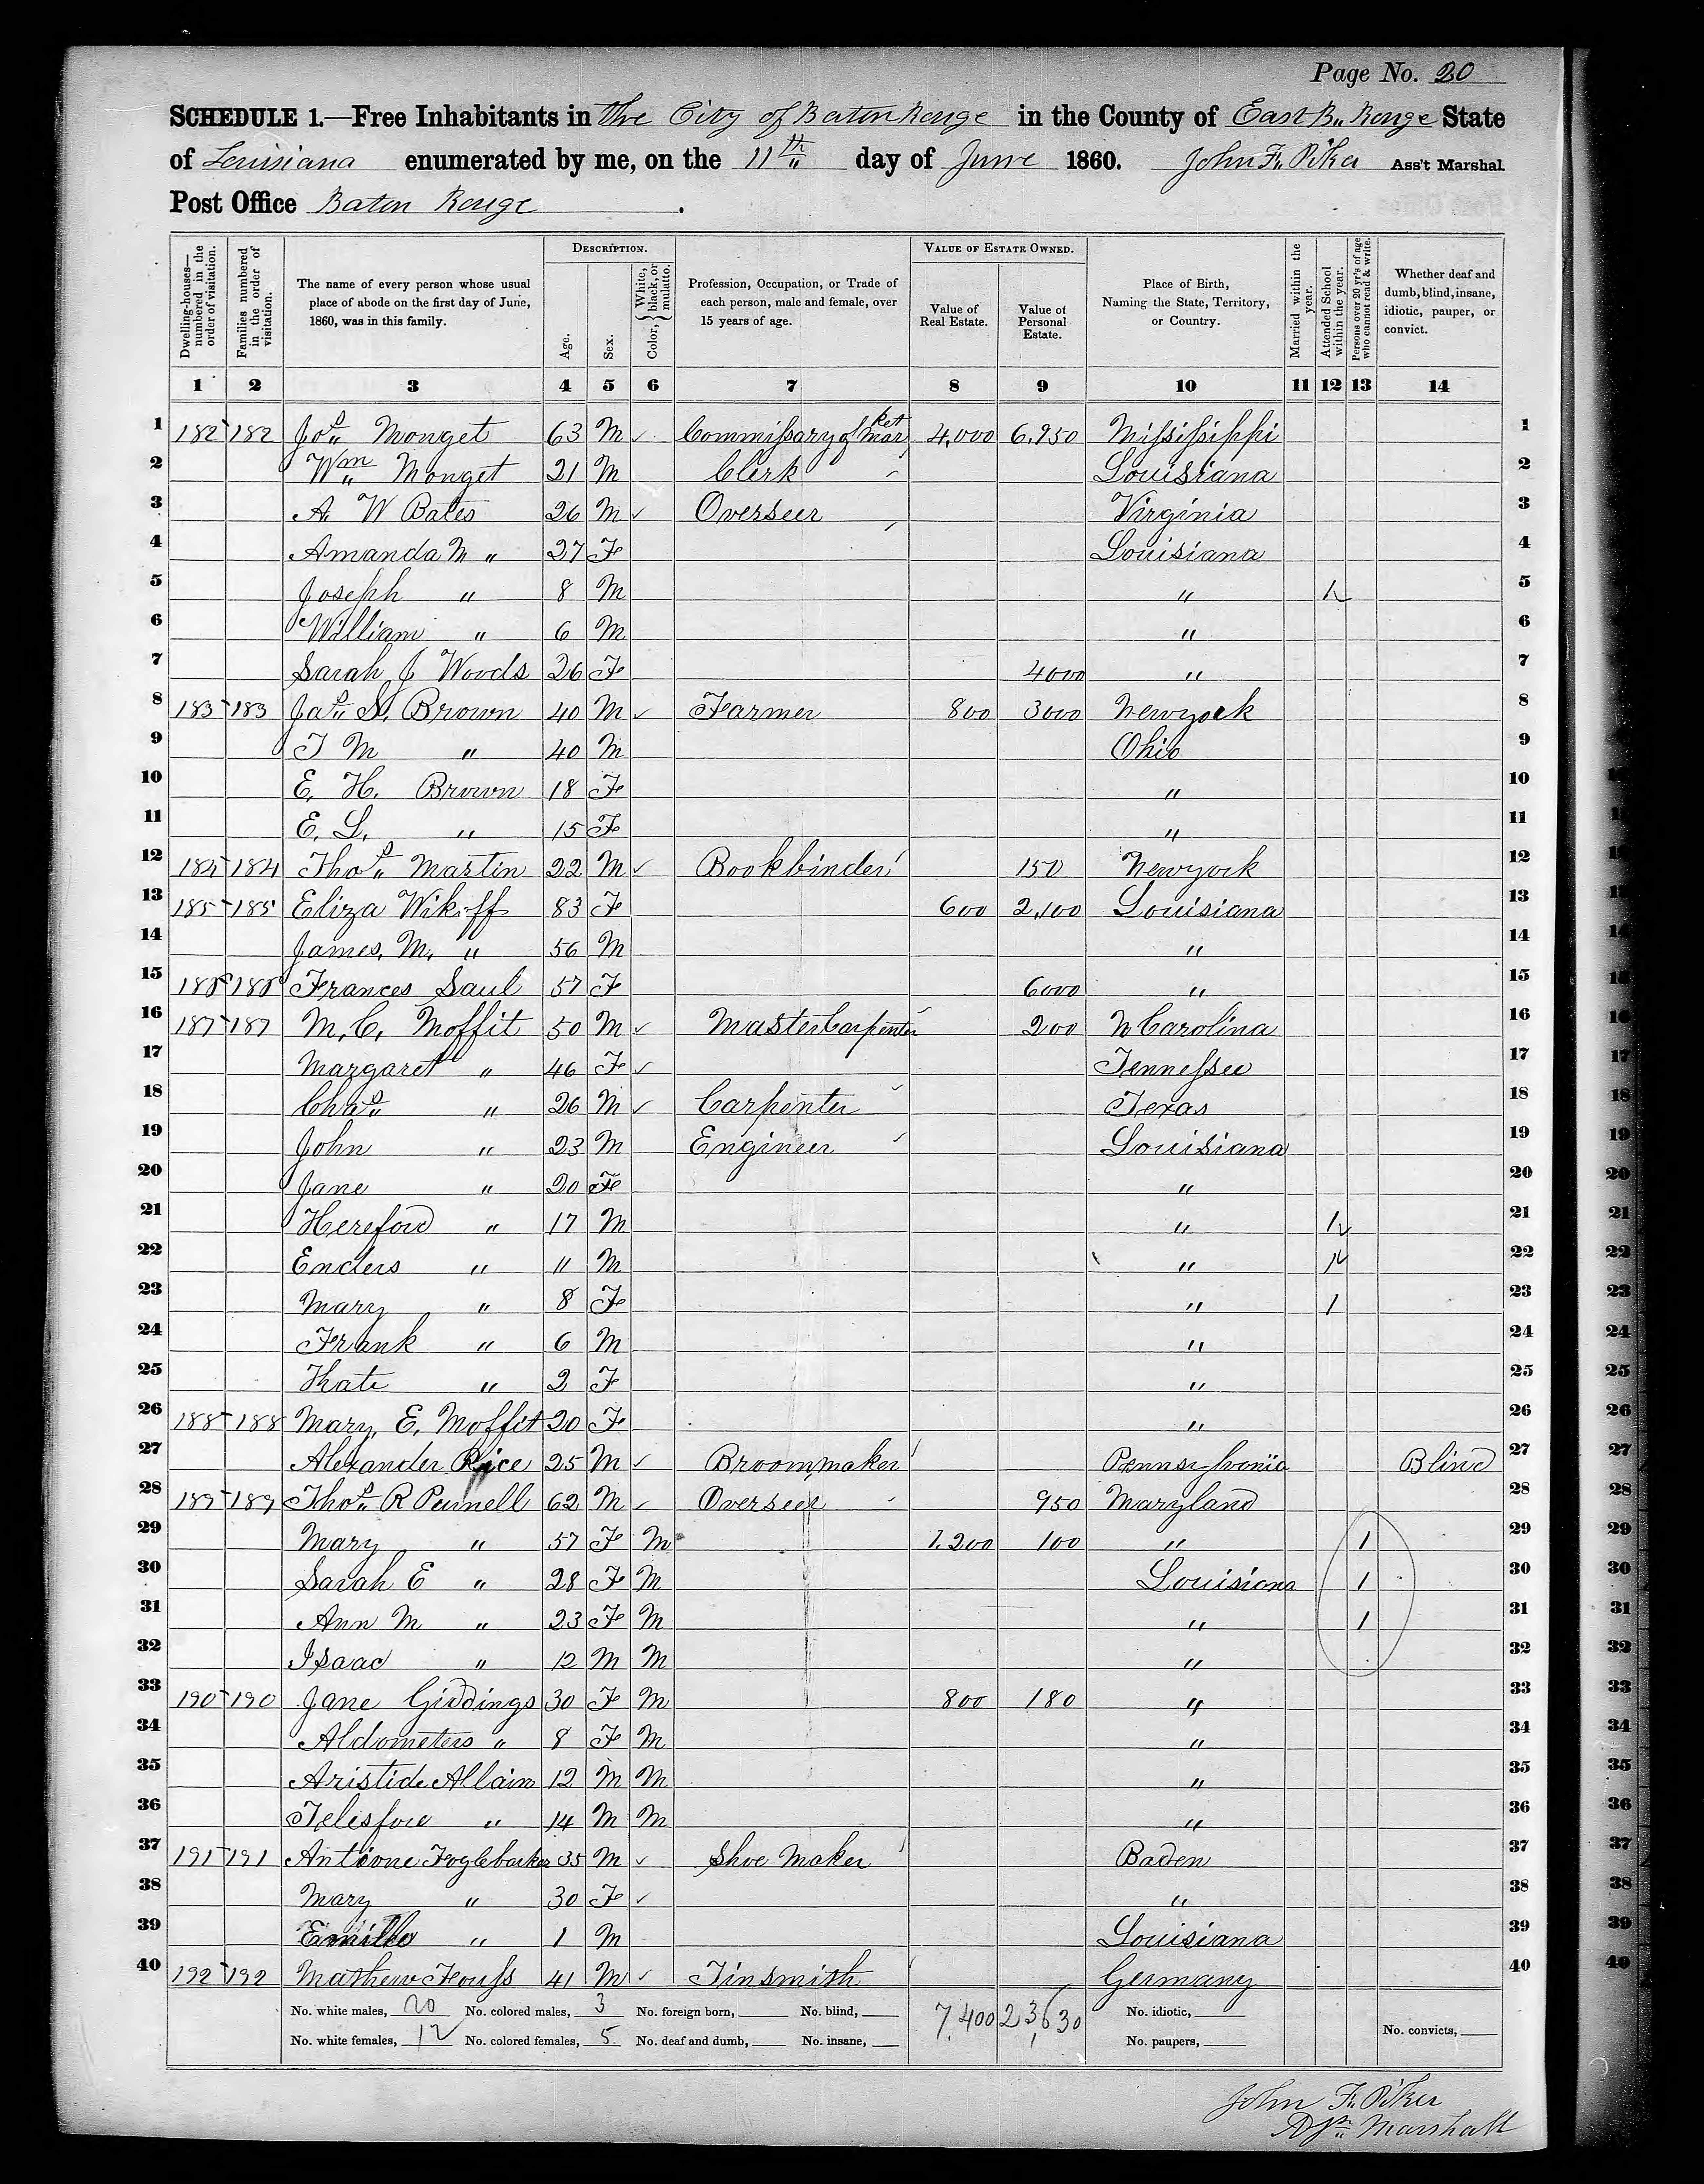 Page No. 20
SCHEDULE 1.—Free Inhabitants in the City of Baton Rouge in the County of East B. Rouge State
of Louisiana enumerated by me, on the 11th day of June 1860. John F. Piker Ass't Marshal.
Post Office Baton Rouge.
Dwelling-houses—numbered in the order of visitation. Families numbered in the order of visitation. The name of every person whose usual place of abode on the first day of June, 1860, was in this family. DESCRIPTION. Age. Sex. Color, {White, black, or mulatto. Profession, Occupation, or Trade of each person, male and female, over 15 years of age. VALUE OF ESTATE OWNED. Value of Real Estate. Value of Personal Estate. Place of Birth, Naming the State, Territory, or Country. Married within the year. Attended School within the year. Persons over 20 y'rs of age who cannot read & write. Whether deaf and dumb, blind, insane, idiotic, pauper, or convict.
1 2 3 4 5 6 7 8 9 10 11 12 13 14
1 182 182 Jos Monget 63 M ✓ Commissary of Market 4,000 6,950 Mississippi 1
2 Wm Monget 21 M Clerk Louisiana 2
3 A. W Bates 26 M ✓ Overseer Virginia 3
4 Amanda M " 27 F Louisiana 4
5 Joseph " 8 M " 1 5
6 William " 6 M " 6
7 Sarah J Woods 26 F 4000 " 7
8 183 183 Jas S. Brown 40 M ✓ Farmer 800 3000 Newyork 8
9 J M " 40 M Ohio 9
10 E. H. Brown 18 F " 10
11 E. L. " 15 F " 11
12 184 184 Thos Martin 22 M ✓ Bookbinder 150 Newyork 12
13 185 185 Eliza Wikoff 83 F 600 2,100 Louisiana 13
14 James. M. " 56 M " 14
15 186 186 Frances Saul 57 F 6000 " 15
16 187 187 M. C. Moffit 50 M ✓ Master Carpenter 200 N Carolina 16
17 Margaret " 46 F ✓ Tennessee 17
18 Chas " 26 M ✓ Carpenter Texas 18
19 John " 23 M Engineer Louisiana 19
20 Jane " 20 F " 20
21 Hereford " 17 M " 1 21
22 Enders " 11 M " 1 22
23 Mary " 8 F " 1 23
24 Frank " 6 M " 24
25 Kate " 2 F " 25
26 188 188 Mary. E. Moffit 20 F " 26
27 Alexander Rice 25 M ✓ Broommaker Pennsylvania Blind 27
28 189 189 Thos R Purnell 62 M ✓ Overseer 950 Maryland 28
29 Mary " 57 F M 1,200 100 " 1 29
30 Sarah E " 28 F M Louisiana 1 30
31 Ann M " 23 F M " 1 31
32 Isaac " 12 M M " 32
33 190 190 Jane Giddings 30 F M 800 180 " 33
34 Aldometers " 8 F M " 34
35 Aristide Allain 12 M M " 35
36 Telesfore " 14 M M " 36
37 191 191 Antione Foglebarker 35 M ✓ Shoe Maker Baden 37
38 Mary " 30 F ✓ " 38
39 Emille " 1 M Louisiana 39
40 192 192 Mathew Fouss 41 M ✓ Tinsmith Germany 40
No. white males, 20 No. colored males, 3 No. foreign born, No. blind, 7,400 23,630 No. idiotic,
No. white females, 12 No. colored females, 5 No. deaf and dumb, No. insane, No. paupers, No. convicts,
John F. Piker
Marshall